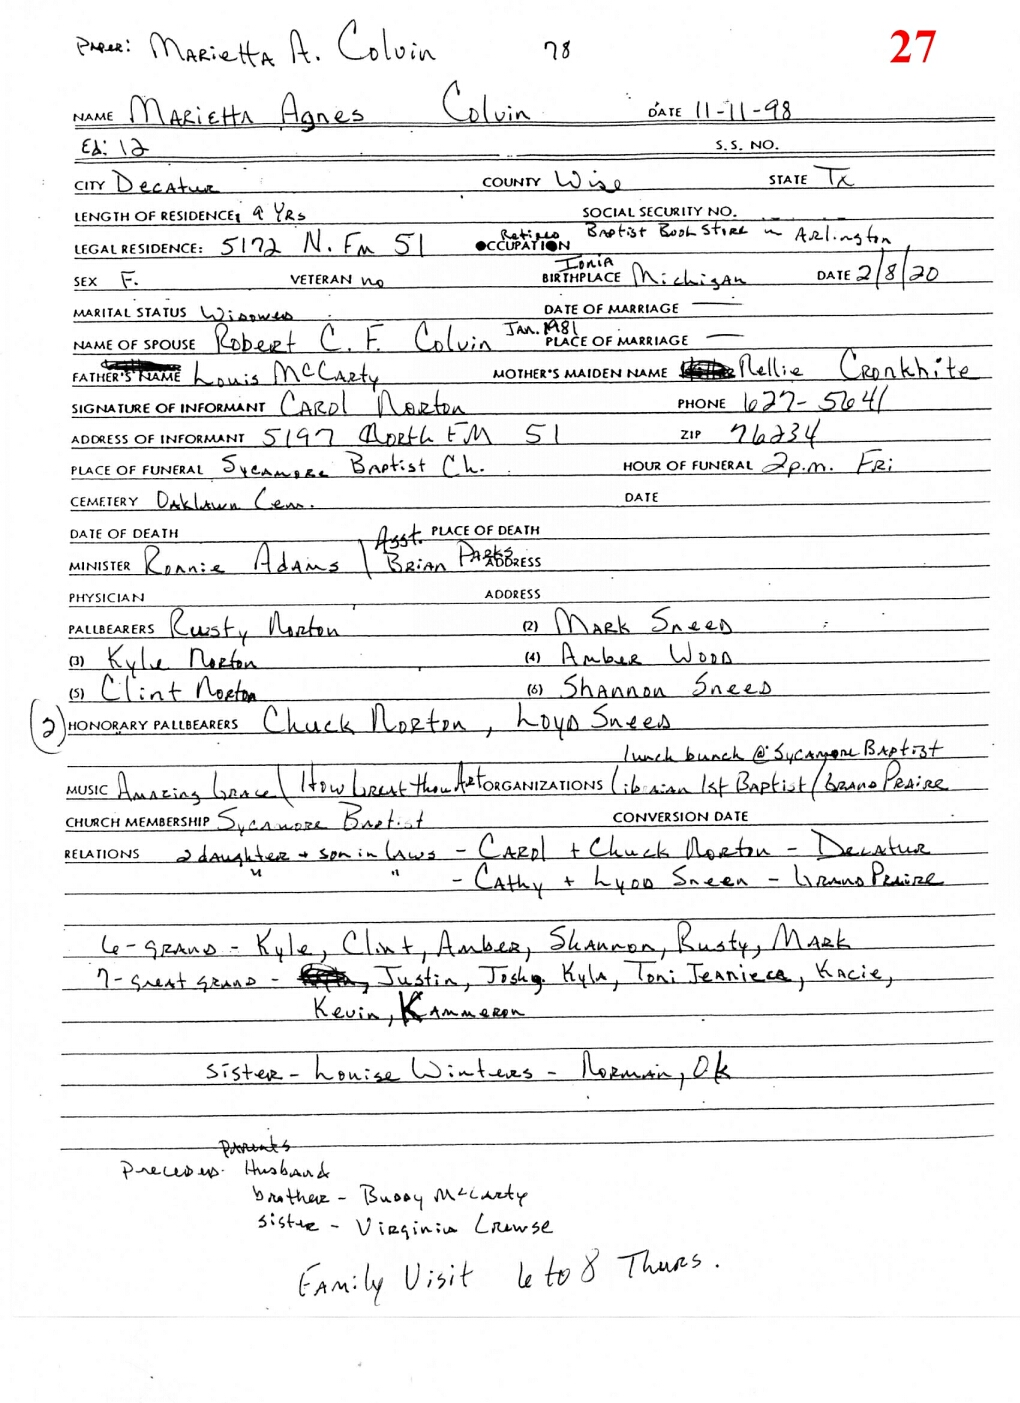 Paper: Marietta A. Colvin 78 27
NAME Marietta Agnes Colvin DATE 11-11-98
Ed: 12 S.S. NO.
CITY Decatur COUNTY Wise STATE Tx
LENGTH OF RESIDENCE: 9 Yrs SOCIAL SECURITY NO.
LEGAL RESIDENCE: 5172 N. Fm 51 Retired OCCUPATION Baptist Book Store in Arlington
SEX F. VETERAN no Ionia BIRTHPLACE Michigan DATE 2/8/20
MARITAL STATUS Widowed DATE OF MARRIAGE —
NAME OF SPOUSE Robert C. F. Colvin Jan. 1981 PLACE OF MARRIAGE —
FATHER'S NAME Louis McCarty MOTHER'S MAIDEN NAME Nellie Cronkhite
SIGNATURE OF INFORMANT Carol Norton PHONE 627-5641
ADDRESS OF INFORMANT 5197 North FM 51 ZIP 76234
PLACE OF FUNERAL Sycamore Baptist Ch. HOUR OF FUNERAL 2p.m. Fri
CEMETERY Oaklawn Cem. DATE
DATE OF DEATH PLACE OF DEATH
MINISTER Ronnie Adams / Asst. Brian Parks ADDRESS
PHYSICIAN ADDRESS
PALLBEARERS Rusty Norton (2) Mark Sneed
(3) Kyle Norton (4) Amber Wood
(5) Clint Norton (6) Shannon Sneed
(2) HONORARY PALLBEARERS Chuck Norton, Loyd Sneed
lunch bunch @ Sycamore Baptist
MUSIC Amazing Grace / How Great thou Art ORGANIZATIONS Libraian 1st Baptist / Grand Praire
CHURCH MEMBERSHIP Sycamore Baptist CONVERSION DATE
RELATIONS 2 daughter + son in laws - Carol + Chuck Norton - Decatur
" " - Cathy + Lyod Sneed - Grand Praire
6 - grand - Kyle, Clint, Amber, Shannon, Rusty, Mark
7 - great grand - Justin, Josh, Kyla, Toni Jeanieca, Kacie,
Kevin, Kammeron
Sister - Louise Winters - Norman, Ok
Parents
Preceded - Husband
brother - Buddy McCarty
sister - Virginia Crewse
Family Visit 6 to 8 Thurs.